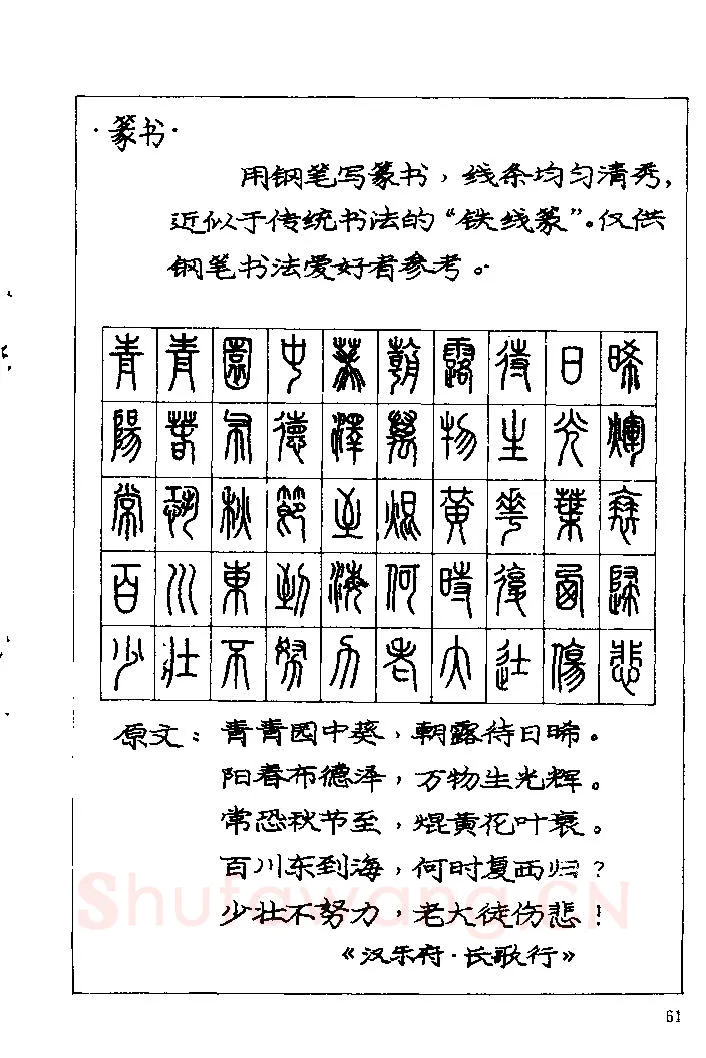 ·篆书·
用钢笔写篆书，线条均匀清秀，
近似于传统书法的“铁线篆”。仅供
钢笔书法爱好者参考。
青青園中葵朝露待日晞
陽春布德澤萬物生光煇
常恐秋節至焜黄華葉衰
百川東到海何時復西歸
少壯不努力老大徒傷悲
原文：青青园中葵，朝露待日晞。
阳春布德泽，万物生光辉。
常恐秋节至，焜黄花叶衰。
百川东到海，何时复西归？
少壮不努力，老大徒伤悲！
《汉乐府·长歌行》
Shufawang.CN
61